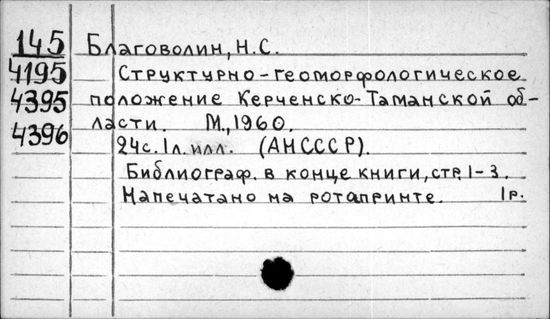 145 Благоволин, Н.С.
4195 Структурно-геоморфологическое
4395 положение Керченско-Таманской об-
4396 ласти. М., 1960.
24с. 1л. илл. (АН СССР).
Библиограф. в конце книги, стр. 1-3.
Напечатано на ротапринте. 1р.